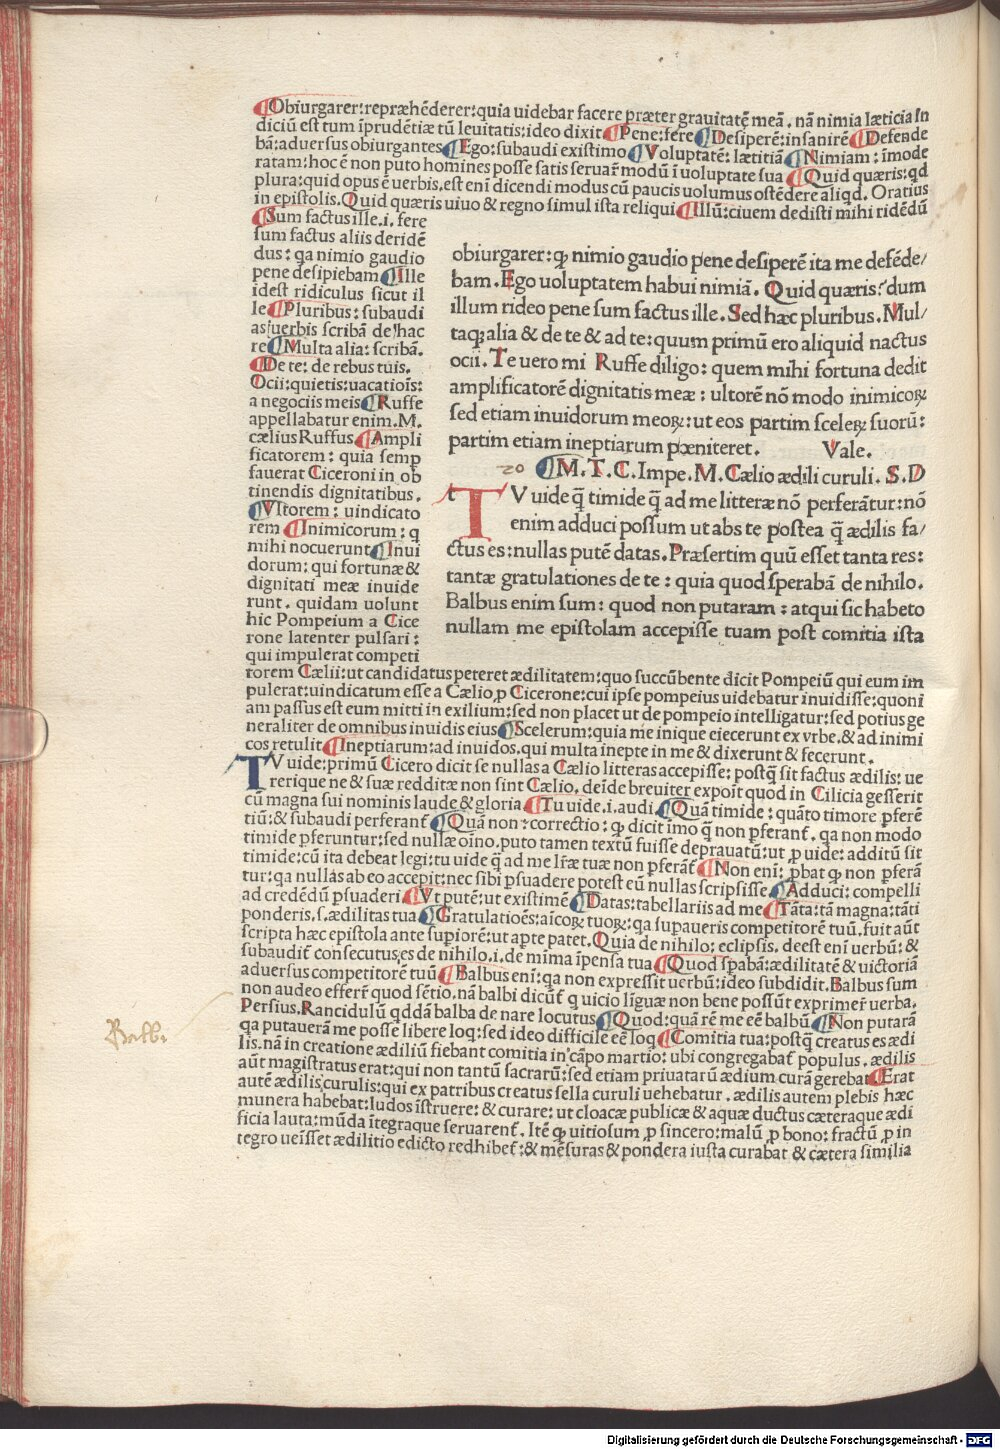 ¶Obiurgarer:repræhēderer:quia uidebar facere præter grauitatē meā. nā nimia læticia in
diciū est tum īprudētiæ tū leuitatis:ideo dixit ¶Pene:fere ¶Desiperē:insanirē ¶Defende
bā:aduersus obiurgantes ¶Ego:subaudi existimo ¶Voluptatē: lætitiā ¶Nimiam: īmode
ratam:hoc ē non puto homines posse satis seruar̄ modū ī uoluptate sua ¶Quid quæris:qd
plura:quid opus ē uerbis.est enī dicendi modus cū paucis uolumus ostēdere aliqd. Oratius
in epistolis.Quid quæris uiuo & regno simul ista reliqui ¶Illū:ciuem dedisti mihi ridēdū
¶Sum factus ille.i. fere
sum factus aliis deridē
dus: qa nimio gaudio
pene desipiebam ¶Ille
idest ridiculus sicut il
le ¶Pluribus: subaudi
as!uerbis scribā de!hac
re ¶Multa alia: scribā.
¶De te: de rebus tuis.
Ocii:quietis:uacatiois:
a negociis meis ¶Ruffe
appellabatur enim.M.
cælius Ruffus ¶Ampli
ficatorem: quia semp
fauerat Ciceroni in ob
tinendis dignitatibus.
¶Vltorem: uindicato
rem ¶Inimicorum: q
mihi nocuerunt ¶Inui
dorum: qui fortunæ &
dignitati meæ inuide
runt. quidam uolunt
hic Pompeium a Cice
rone latenter pulsari:
qui impulerat competi
obiurgarer:ꝙ nimio gaudio pene desiperē ita me defēde/
bam. Ego uoluptatem habui nimiā. Quid quæris:dum
illum rideo pene sum factus ille. Sed hæc pluribus. Mul/
taqꝫ alia & de te & ad te:quum primū ero aliquid nactus
ocii. Te uero mi Ruffe diligo: quem mihi fortuna dedit
amplificatorē dignitatis meæ: ultorē nō modo inimicoꝝ
sed etiam inuidorum meoꝝ:ut eos partim sceleꝝ suorū:
partim etiam ineptiarum pœniteret. Vale.
20 ¶M.T.C.Impe.M.Cælio ædili curuli.S.D
t TV uide q̄ timide q̄ ad me litteræ nō perferātur:nō
enim adduci possum ut abs te postea q̄ ædilis fa/
ctus es:nullas putē datas. Præsertim quū esset tanta res:
tantæ gratulationes de te: quia quod sperabā de nihilo.
Balbus enim sum: quod non putaram: atqui sic habeto
nullam me epistolam accepisse tuam post comitia ista
rorem Cælii:ut candidatus peteret ædilitatem:quo succūbente dicit Pompeiū qui eum im
pulerat:uindicatum esse a Cælio ꝓ Cicerone:cui ipse pompeius uidebatur inuidisse:quoni
am passus est eum mitti in exilium:sed non placet ut de pompeio intelligatur:sed potius ge
neraliter de omnibus inuidis eius ¶Scelerum:quia me inique eiecerunt ex vrbe.& ad inimi
cos retulit ¶Ineptiarum:ad inuidos.qui multa inepte in me & dixerunt & fecerunt.
TV uide:primū Cicero dicit se nullas a Cælio litteras accepisse: postq̄ sit factus ædilis: ue
rerique ne & suæ redditæ non sint Cælio. deīde breuiter expoīt quod in Cilicia gesserit
cū magna sui nominis laude & gloria ¶Tu uide.i.audi ¶Quā timide: quāto timore pferē
tiū: & subaudi perferant̄ ¶Quā non: correctio: ꝙ dicit īmo q̄ non pferant̄. qa non modo
timide pferuntur:sed nullæ oīno.puto tamen textū fuisse deprauatū:ut ꝓ uide: additū sit
timide:cū ita debeat legi:tu uide q̄ ad me lr̄æ tuæ non pferāt̄ ¶Non eni: pbat ꝙ non pferā
tur:qa nullas ab eo accepit:nec sibi psuadere potest eū nullas scripsisse ¶Adduci: compelli
ad credēdū psuaderi ¶Vt putē:ut existimē ¶Datas:tabellariis ad me ¶Tāta:tā magna:tāti
ponderis.s.ædilitas tua ¶Gratulatioēs:aīcoꝝ tuoꝝ:qa supaueris competitorē tuū.fuit aūt
scripta hæc epistola ante supiorē:ut apte patet. Quia de nihilo: eclipsis. deest enī uerbū: &
subaudit̄ consecutus es de nihilo.i.de mima īpensa tua ¶Quod spabā:ædilitatē & uictoriā
aduersus competitorē tuū ¶Balbus enī:qa non expressit uerbū:ideo subdidit. Balbus sum
non audeo efferr̄ quod sētio.nā balbi dicūt̄ q uicio līguæ non bene possūt exprimer̄ uerba.
Persius.Rancidulū qddā balba de nare locutus ¶Quod:quā rē me eē balbū ¶Non putarā
qa putauerā me posse libere loq:sed ideo difficile eē loq ¶Comitia tua:postq̄ creatus es ædi
lis.nā in creatione ædiliū fiebant comitia in cāpo martio: ubi congregabat̄ populus. ædilis
aūt magistratus erat:qui non tantū sacrarū:sed etiam priuatarū ædium curā gerebat ¶Erat
autē ædilis curulis:qui ex patribus creatus sella curuli uehebatur. ædilis autem plebis hæc
munera habebat:ludos īstruere: & curare: ut cloacæ publicæ & aquæ ductus cæteraque ædi
ficia lauta:mūda ītegraque seruarent̄. Itē ꝙ uitiosum ꝓ sincero:malū ꝓ bono: fractū ꝓ in
tegro ueīsset ædilitio edicto redhibet̄:& mēsuras & pondera iusta curabat & cætera similia
Balbi
Digitalisierung gefördert durch die Deutsche Forschungsgemeinschaft - DFG